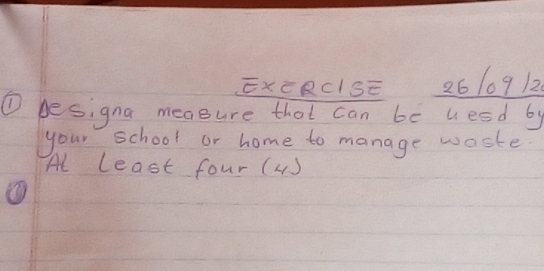 EXERCISE 26/09/2
① Designa measure that can be uesd by
your school or home to manage waste.
At Least four (4)